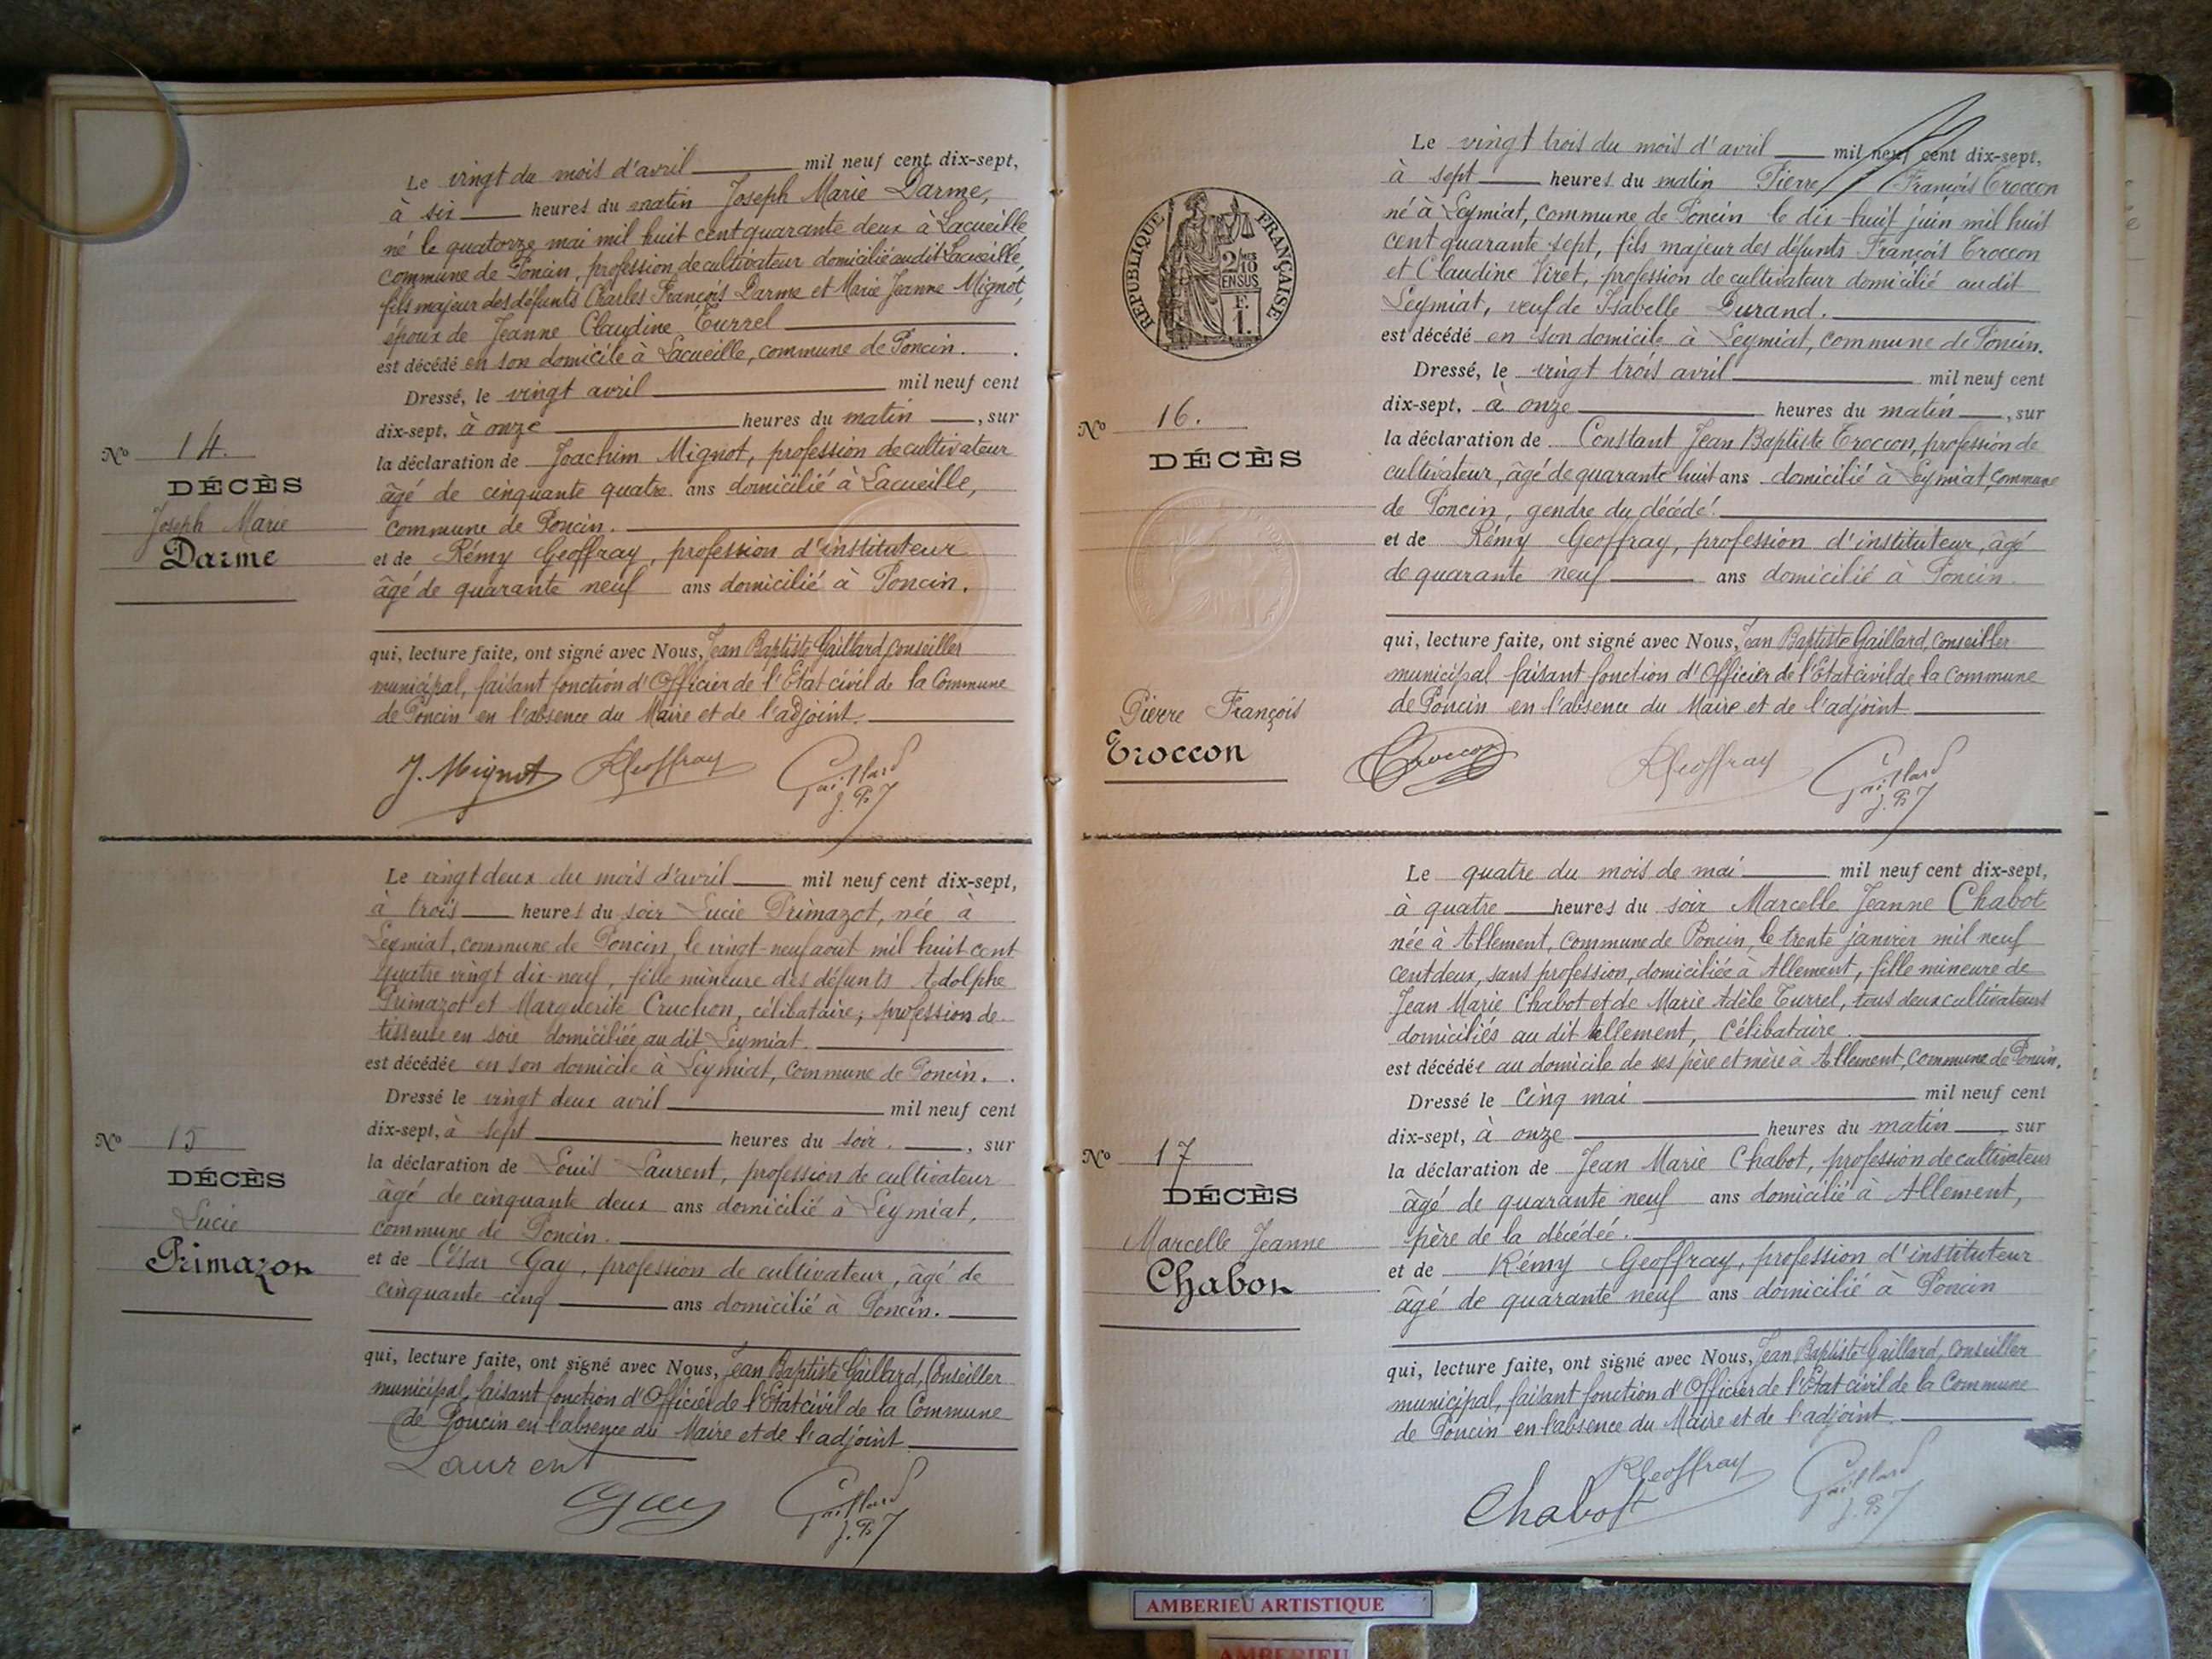 Le vingt du mois d'avril mil neuf cent dix-sept,
à six heures du matin Joseph Marie Darme,
né le quatorze mai mil huit cent quarante deux à Lacueille
commune de Poncin, profession de cultivateur domicilié au dit Lacueille,
fils majeur des défunts Charles François Darme et Marie Jeanne Mignot,
époux de Jeanne Claudine Turrel
est décédé en son domicile à Lacueille, commune de Poncin.
Dressé, le vingt avril mil neuf cent
dix-sept, à onze heures du matin, sur
la déclaration de Joachim Mignot, profession de cultivateur
âgé de cinquante quatre ans domicilié à Lacueille,
commune de Poncin.
et de Rémy Geoffray, profession d'instituteur
âgé de quarante neuf ans domicilié à Poncin.
qui, lecture faite, ont signé avec Nous, Jean Baptiste Gaillard, Conseiller
municipal, faisant fonction d'Officier de l'Etat civil de la Commune
de Poncin en l'absence du Maire et de l'adjoint.
J. Mignot RGeoffray Gaillard
J. B
No 14.
DÉCÈS
Joseph Marie
Darme
Le vingt deux du mois d'avril mil neuf cent dix-sept,
à trois heures du soir Lucie Primazot, née à
Leymiat, commune de Poncin, le vingt-neuf août mil huit cent
quatre vingt dix-neuf, fille mineure des défunts Adolphe
Primazot et Marguerite Cruchon, célibataire; profession de
tisseuse en soie domiciliée au dit Leymiat.
est décédée en son domicile à Leymiat, commune de Poncin.
Dressé le vingt deux avril mil neuf cent
dix-sept, à sept heures du soir, sur
la déclaration de Louis Laurent, profession de cultivateur
âgé de cinquante deux ans domicilié à Leymiat,
commune de Poncin.
et de César Gay, profession de cultivateur, âgé de
cinquante cinq ans domicilié à Poncin.
qui, lecture faite, ont signé avec Nous, Jean Baptiste Gaillard, Conseiller
municipal, faisant fonction d'Officier de l'Etat civil de la Commune
de Poncin en l'absence du Maire et de l'adjoint
Laurent
Gay Gaillard
J. B
No 15
DÉCÈS
Lucie
Primazot
RÉPUBLIQUE FRANÇAISE
2/10 EN SUS
F.
1.
Le vingt trois du mois d'avril mil neuf cent dix-sept,
à sept heures du matin Pierre François Troccon
né à Leymiat, commune de Poncin le dix huit juin mil huit
cent quarante sept, fils majeur des défunts François Troccon
et Claudine Viret, profession de cultivateur domicilié au dit
Leymiat, veuf de Isabelle Durand.
est décédé en son domicile à Leymiat, commune de Poncin.
Dressé, le vingt trois avril mil neuf cent
dix-sept, à onze heures du matin, sur
la déclaration de Constant Jean Baptiste Troccon, profession de
cultivateur, âgé de quarante huit ans domicilié à Leymiat, commune
de Poncin, gendre du décédé.
et de Rémy Geoffray, profession d'instituteur, âgé
de quarante neuf ans domicilié à Poncin
qui, lecture faite, ont signé avec Nous, Jean Baptiste Gaillard, Conseiller
municipal faisant fonction d'Officier de l'Etat civil de la commune
de Poncin en l'absence du Maire et de l'adjoint
Troccon RGeoffray Gaillard
J. B
No 16.
DÉCÈS
Pierre François
Troccon
Le quatre du mois de mai mil neuf cent dix-sept,
à quatre heures du soir Marcelle Jeanne Chabot
née à Allement, commune de Poncin, le trente janvier mil neuf
cent deux, sans profession, domiciliée à Allement, fille mineure de
Jean Marie Chabot et de Marie Adèle Turrel, tous deux cultivateurs
domiciliés au dit Allement, célibataire.
est décédée au domicile de ses père et mère à Allement, commune de Poncin.
Dressé le cinq mai mil neuf cent
dix-sept, à onze heures du matin, sur
la déclaration de Jean Marie Chabot, profession de cultivateur
âgé de quarante neuf ans domicilié à Allement,
père de la décédée.
et de Rémy Geoffray, profession d'instituteur
âgé de quarante neuf ans domicilié à Poncin
qui, lecture faite, ont signé avec Nous, Jean Baptiste Gaillard, Conseiller
municipal, faisant fonction d'Officier de l'Etat civil de la Commune
de Poncin en l'absence du Maire et de l'adjoint.
RGeoffray Gaillard
Chabot J. B
No 17
DÉCÈS
Marcelle Jeanne
Chabot
AMBERIEU ARTISTIQUE
AMBERIEU